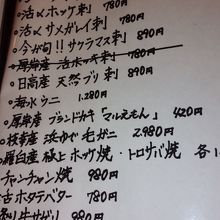 活〆ホッケ刺 780円
活〆サメガレイ刺 780円
今が旬!!サクラマス刺 890円
厚岸産 活ホッキ刺 780円
日高産 天然ブリ刺 780円
海水ウニ 1.280円
厚岸産 ブランドカキ「マルえもん」 420円
枝幸産 浜ゆで毛ガニ 2.980円
羅臼産 極上ホッケ焼・トロサバ焼 各1
チャンチャン焼 980円
古ホタテバター 780円
牛サガリ 980円